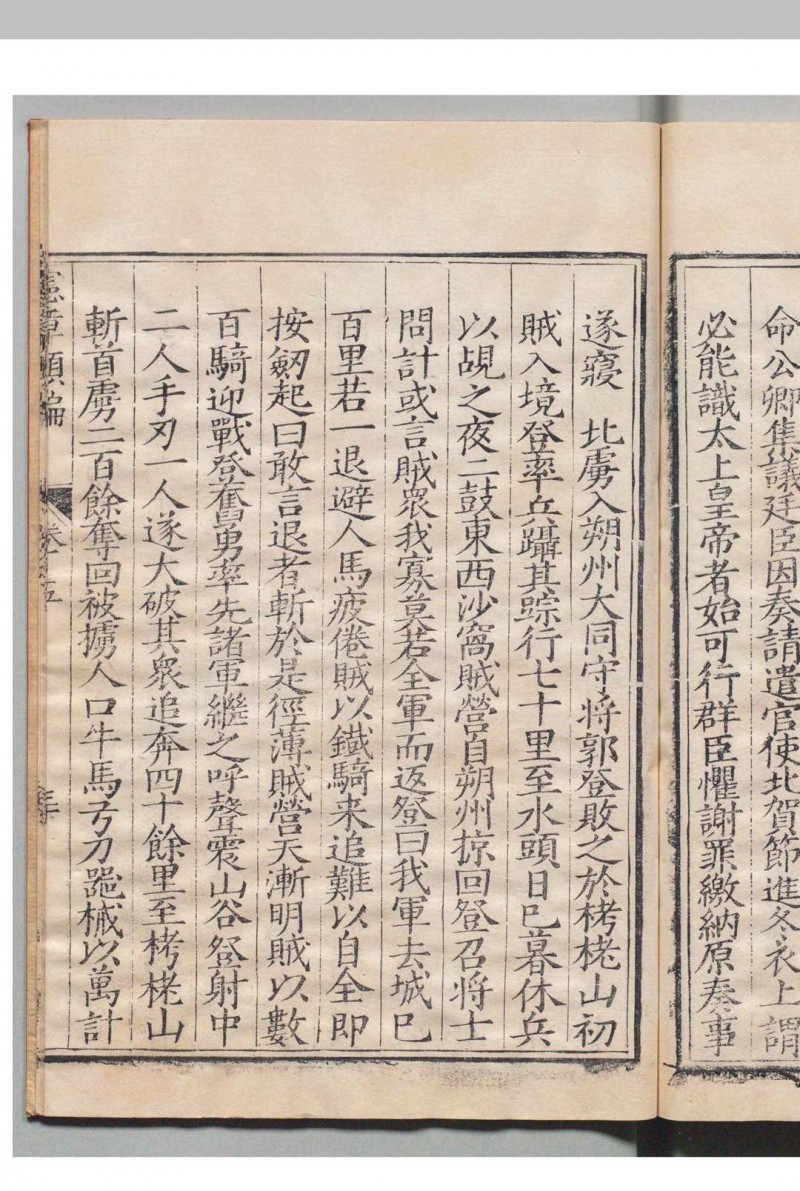 命公卿集議廷臣因奏請遣官使北賀節進冬衣上謂
必能識太上皇帝者始可行群臣懼謝罪繳納原奏事
遂寢　北虜入朔州大同守将郭登敗之於栲栳山初
賊入境登率兵躡其踪行七十里至水頭日已暮休兵
以覘之夜二鼓東西沙窩賊營自朔州掠回登召将士
問計或言賊衆我寡莫若全軍而返登曰我軍去城已
百里若一退避人馬疲倦賊以鐵騎来追難以自全即
按劒起曰敢言退者斬於是徑薄賊營天漸明賊以數
百騎迎戰登奮勇率先諸軍繼之呼聲震山谷登射中
二人手刃一人遂大破其衆追奔四十餘里至栲栳山
斬首虜二百餘奪回被擄人口牛馬弓刀器械以萬計
憲章類編　卷十五